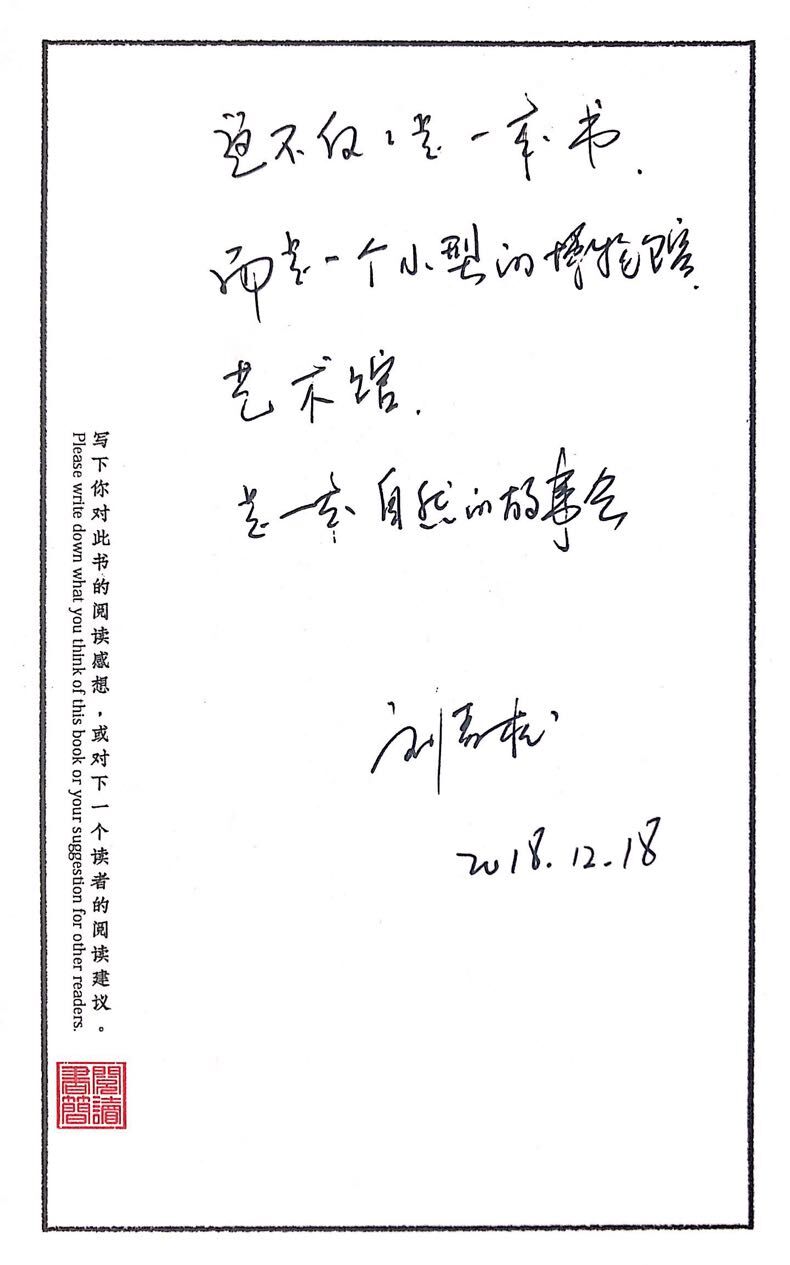 这不仅仅是一本书.
而是一个小型的博物馆.
艺术馆.
是一本自然的故事会
2018.12.18
写下你对此书的阅读感想，或对下一个读者的阅读建议。
Please write down what you think of this book or your suggestion for other readers.
閱讀
書簡